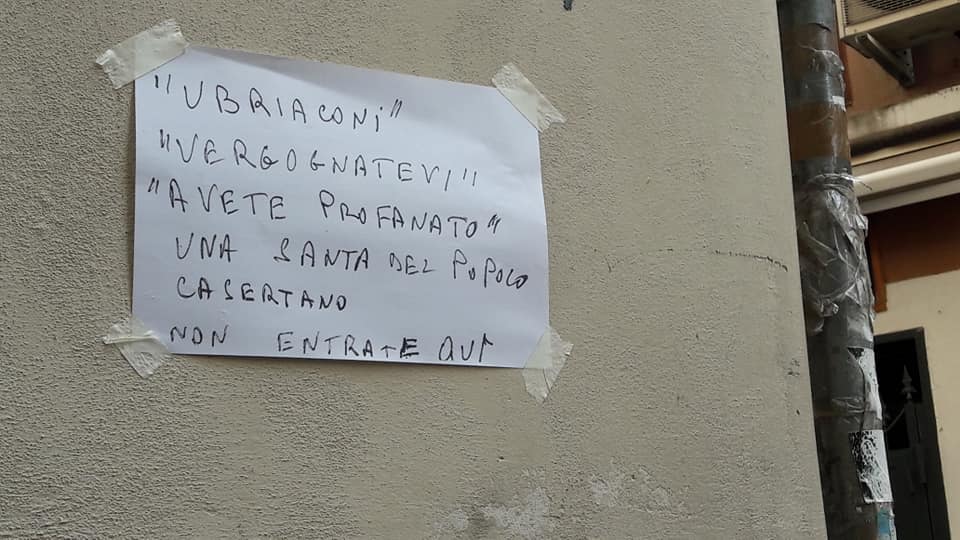 "UBRIACONI"
"VERGOGNATEVI"
"AVETE PROFANATO"
UNA SANTA DEL POPOLO
CASERTANO
NON ENTRATE QUI